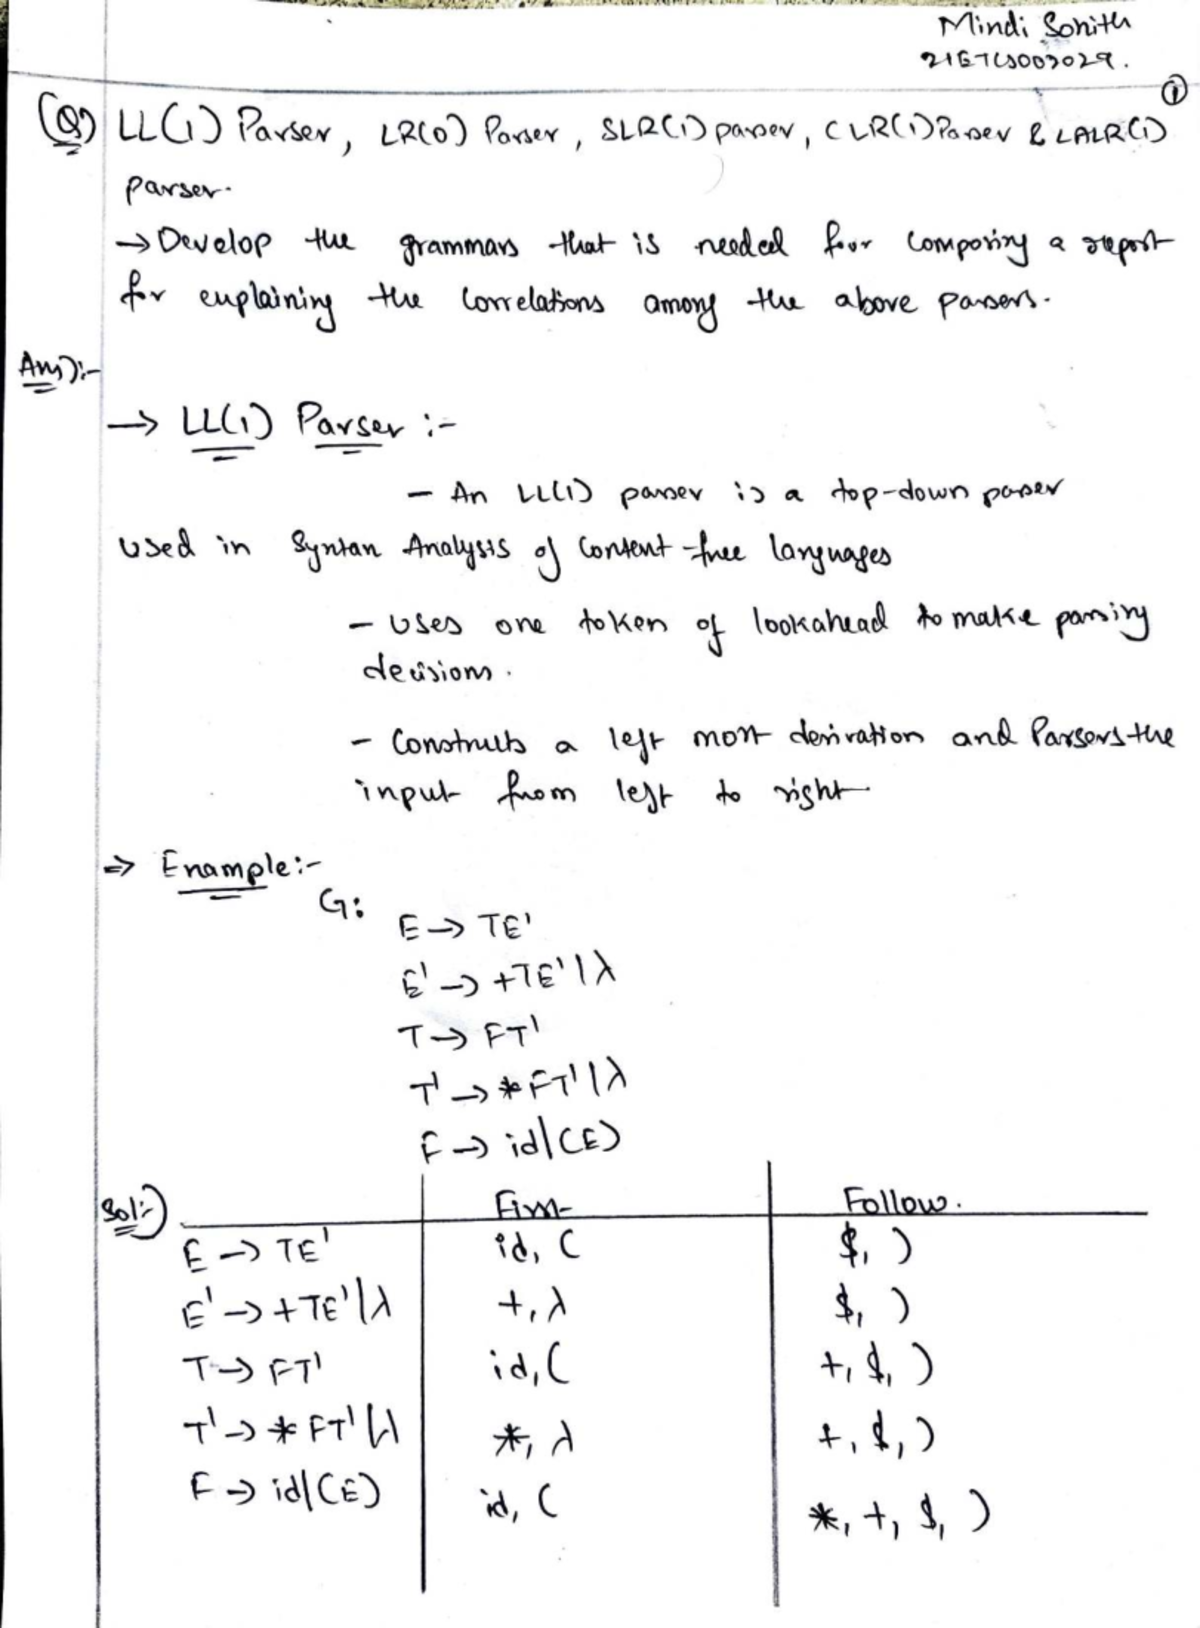 Mindi Sohith
21ETCS003029.
①
(Q) LL(1) Parser, LR(0) Parser, SLR(1) parser, CLR(1) Parser & LALR(1)
parser.
→ Develop the grammars that is needed for composing a report
for explaining the correlations among the above parsers.
Ans):-
→ LL(1) Parser :-
- An LL(1) parser is a top-down parser
used in Syntax Analysis of Context-free languages
- Uses one token of lookahead to make parsing
decisions.
- Constructs a left most derivation and Parsers the
input from left to right
⇒ Example:-
G:
E → TE'
E' → +TE'|λ
T → FT'
T' → *FT'|λ
F → id|(E)
Sol:-) First Follow.
E → TE' id, ( $, )
E' → +TE'|λ +, λ $, )
T → FT' id, ( +, $, )
T' → *FT'|λ *, λ +, $, )
F → id|(E) id, ( *, +, $, )